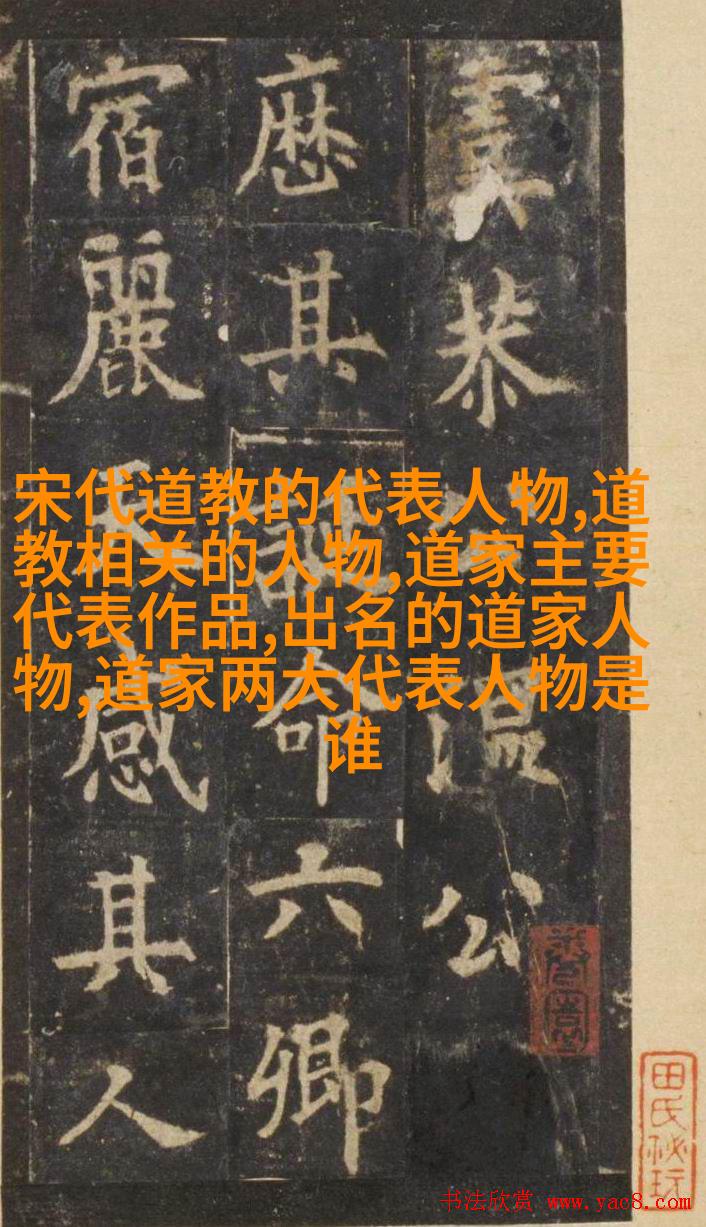 恭温公
厯其命六卿
宿麗天感其人
宋代道教的代表人物,道
教相关的人物,道家主要
代表作品,出名的道家人
物,道家两大代表人物是
谁
田氏秘玩
书法欣赏 www.yac8.com